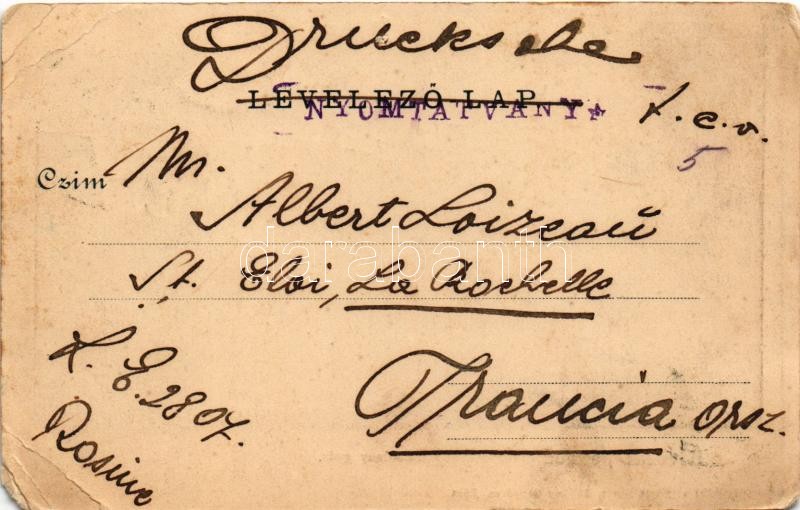 Drucksache
LEVELEZŐ LAP.
NYOMTATVÁNY
t. c. v.
5
Czim
Mr.
Albert Loizeau
St. Eloi, La Rochelle
Francia orsz.
L. E. 2807.
Rosine
darabanth